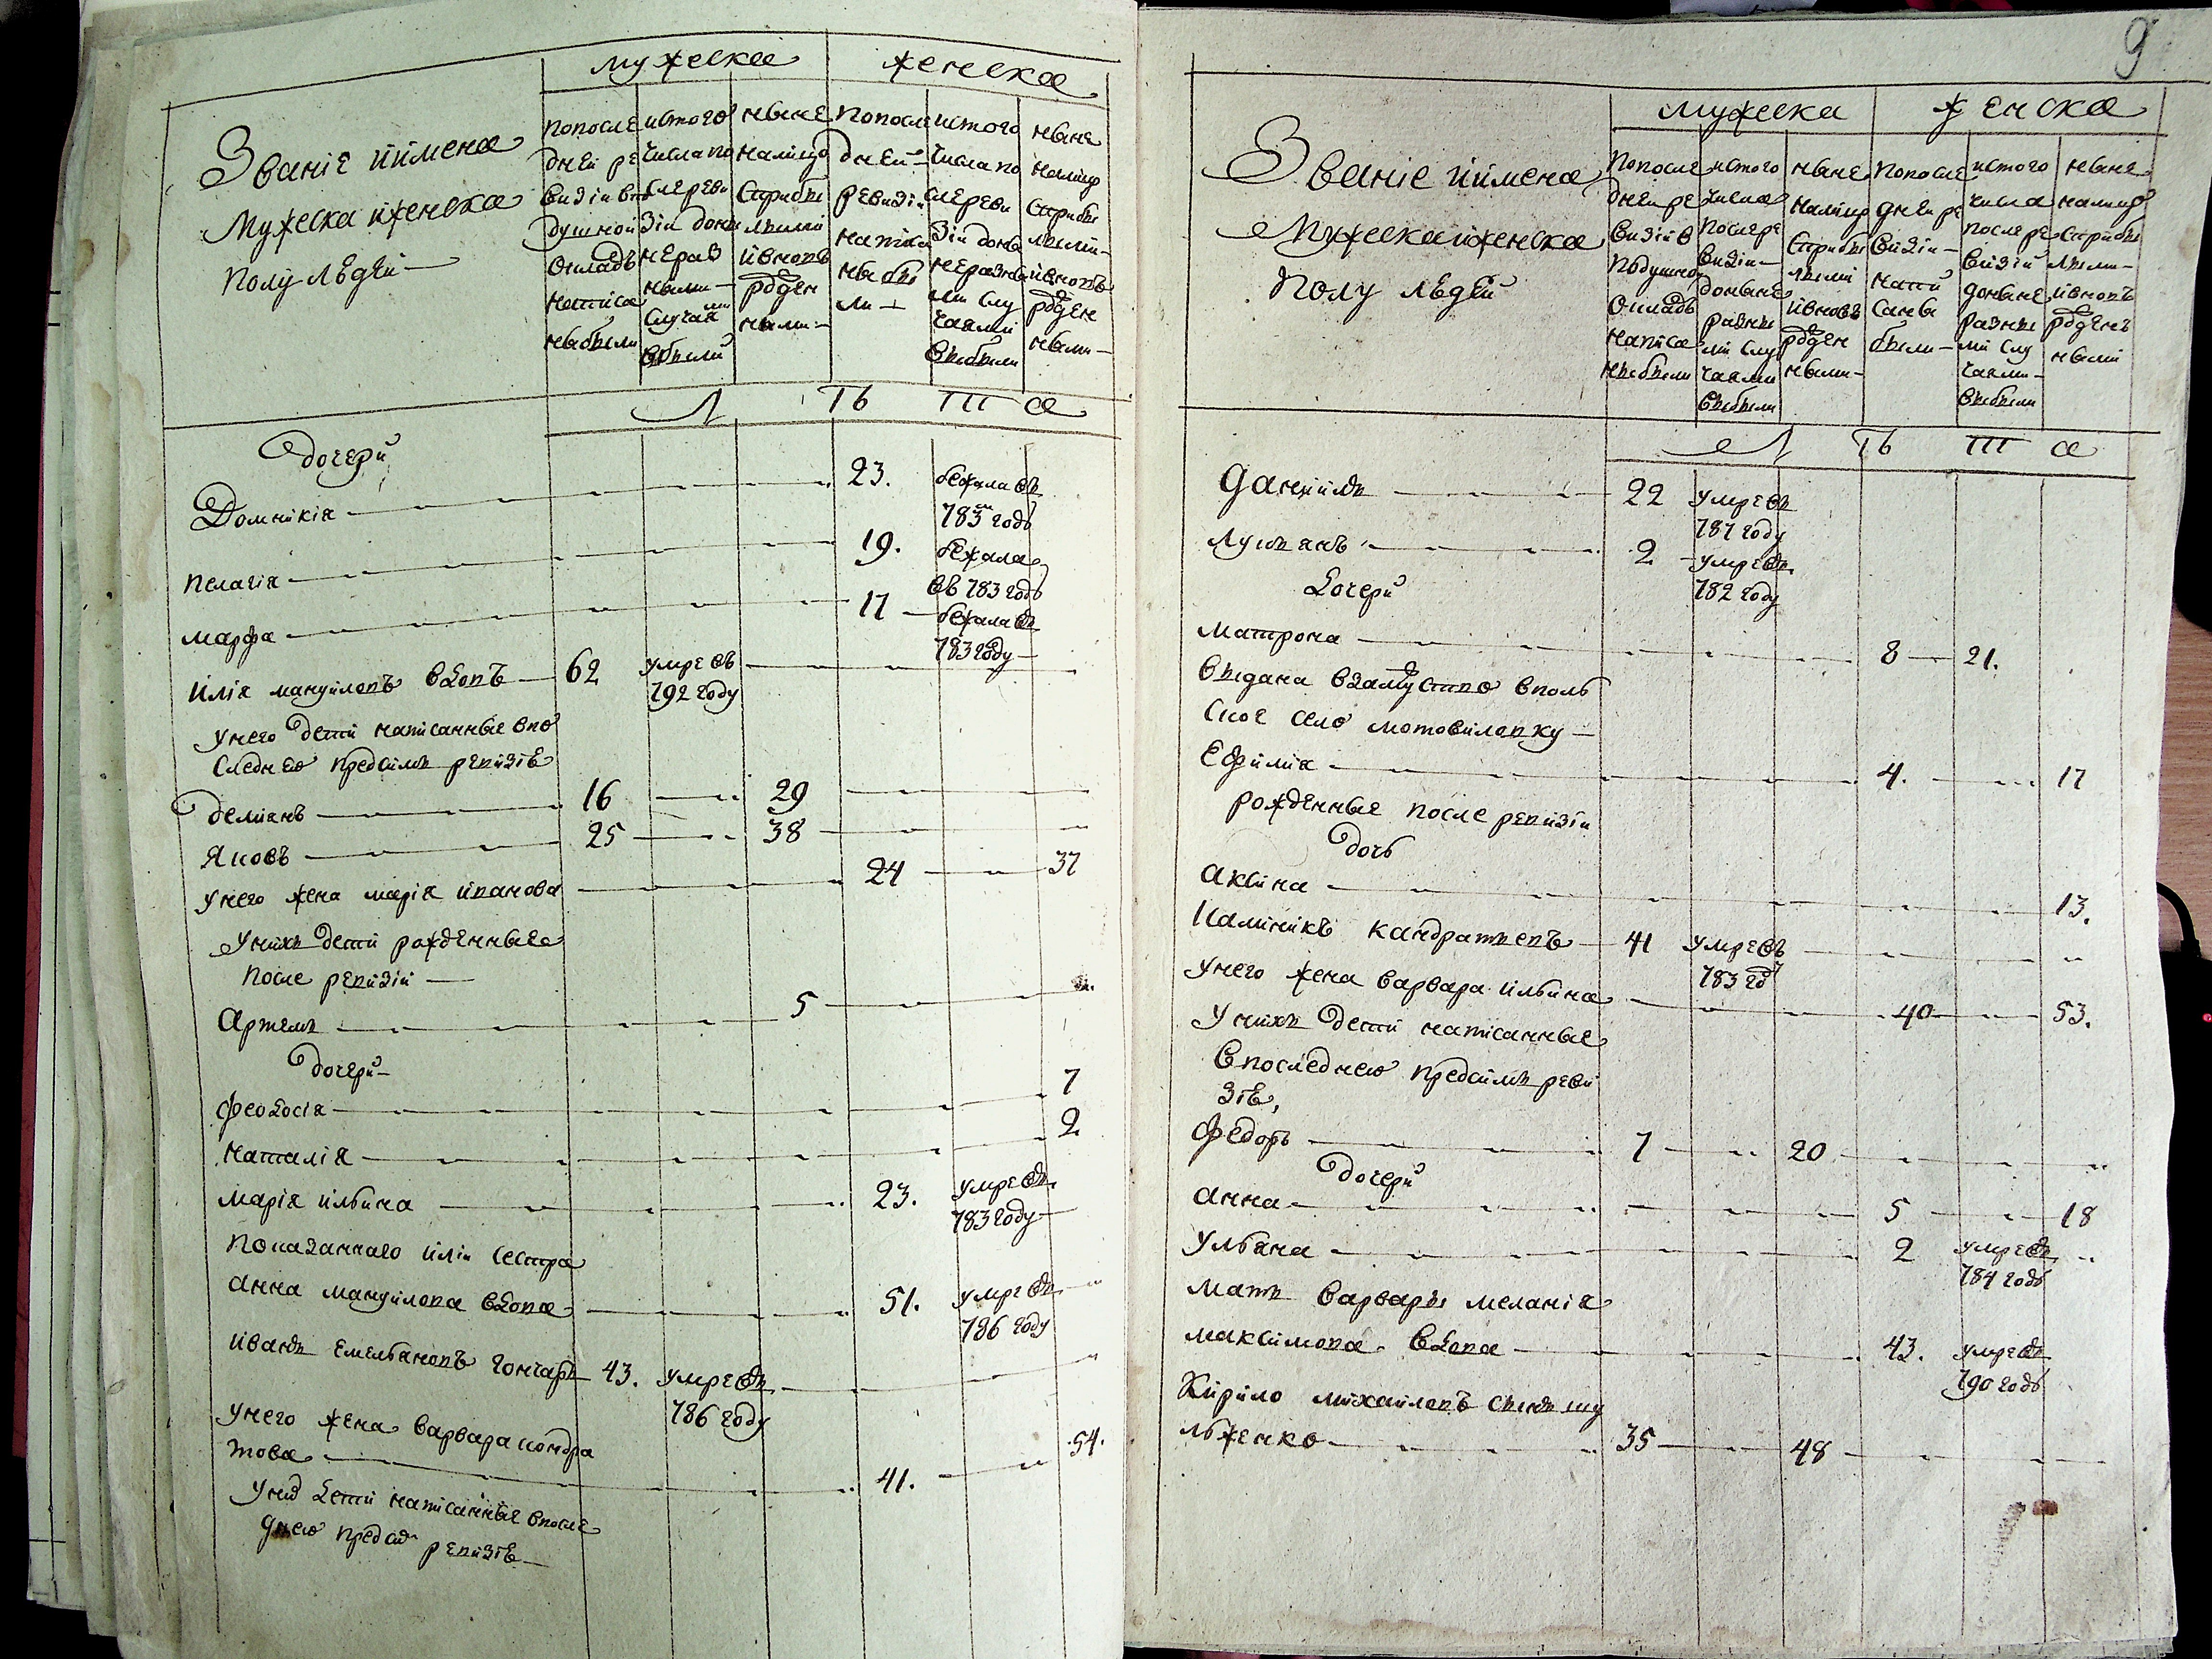 мужеска женска
Званіе иимена
Мужеска иженска
полу людей
попосле
дней ре
визіи впо
душной
окладъ
написа
ны были
истого
числа по
сле реви
зіи доны
не раз
ными
случаями
выбыли
ныне
налицо
Сприбы
лыми
ивновь
рожден
ными
попосле
дней
ревизіи
написа
ны бы
ли
истого
числа по
сле реви
зіи доны
не разны
ми слу
чаями
выбыли
ныне
налицо
Сприбы
лыми
ивновь
рожден
ными
Л Ѣ Т а
дочери
Домникія 23. бежала въ
783м году
Пелагія 19. бежала
въ 783 году
марфа 17 бежала въ
783 году
илія мануиловъ вдовъ 62 умре въ
792 году
унего дети написанные впо
следнею предсимъ ревизіѣ
Демянъ 16 29
Яковъ 25 38
унего жена марія иванова 24 37
унихъ дети рожденные
после ревизіи
Артемъ 5
дочери
феодосія 7
наталія 2
марія ильина 23. умре въ
783 году
показаннаго иліи сестра
анна мануилова вдова 51. умре въ
786 году
иванъ емельяновъ гончаръ 43. умре въ
786 году
унего жена варвара кондра
това 41. 54.
унихъ дети написанные впосле
днею предсимъ ревизіѣ
9
мужеска женска
Званіе иимена
Мужеска иженска
полу людей
попосле
дней ре
визіи в
подушной
окладъ
написа
ны были
истого
числа
после ре
визіи
доныне
разны
ми слу
чаями
выбыли
ныне
налицо
Сприбы
лыми
ивновь
рожден
ными
попосле
дней ре
визіи
напи
саны
были
истого
числа
после ре
визіи
доныне
разны
ми слу
чаями
выбыли
ныне
налицо
Сприбы
лыми
ивновь
рожден
ными
Л Ѣ Т а
даніилъ 22 умре въ
787 году
лукіянъ 2 умре въ
782 году
дочери
матрона 8 21.
выдана взамужство вполь
ское село мотовиловку
Ефимія 4. 17
рожденные после ревизіи
дочь
аксина 13.
Калиникъ кандратьевъ 41 умре въ
783 году
унего жена варвара ильина 40 53.
унихъ дети написанные
впоследнею предсимъ реви
зіѣ,
федоръ 7 20
дочери
анна 5 18
ульяна 2 умре въ
784 годъ
мать варвары меланія
максимова вдова 43. умре въ
790 годъ
Кирило михаиловъ сынъ шу
льженко 35 48